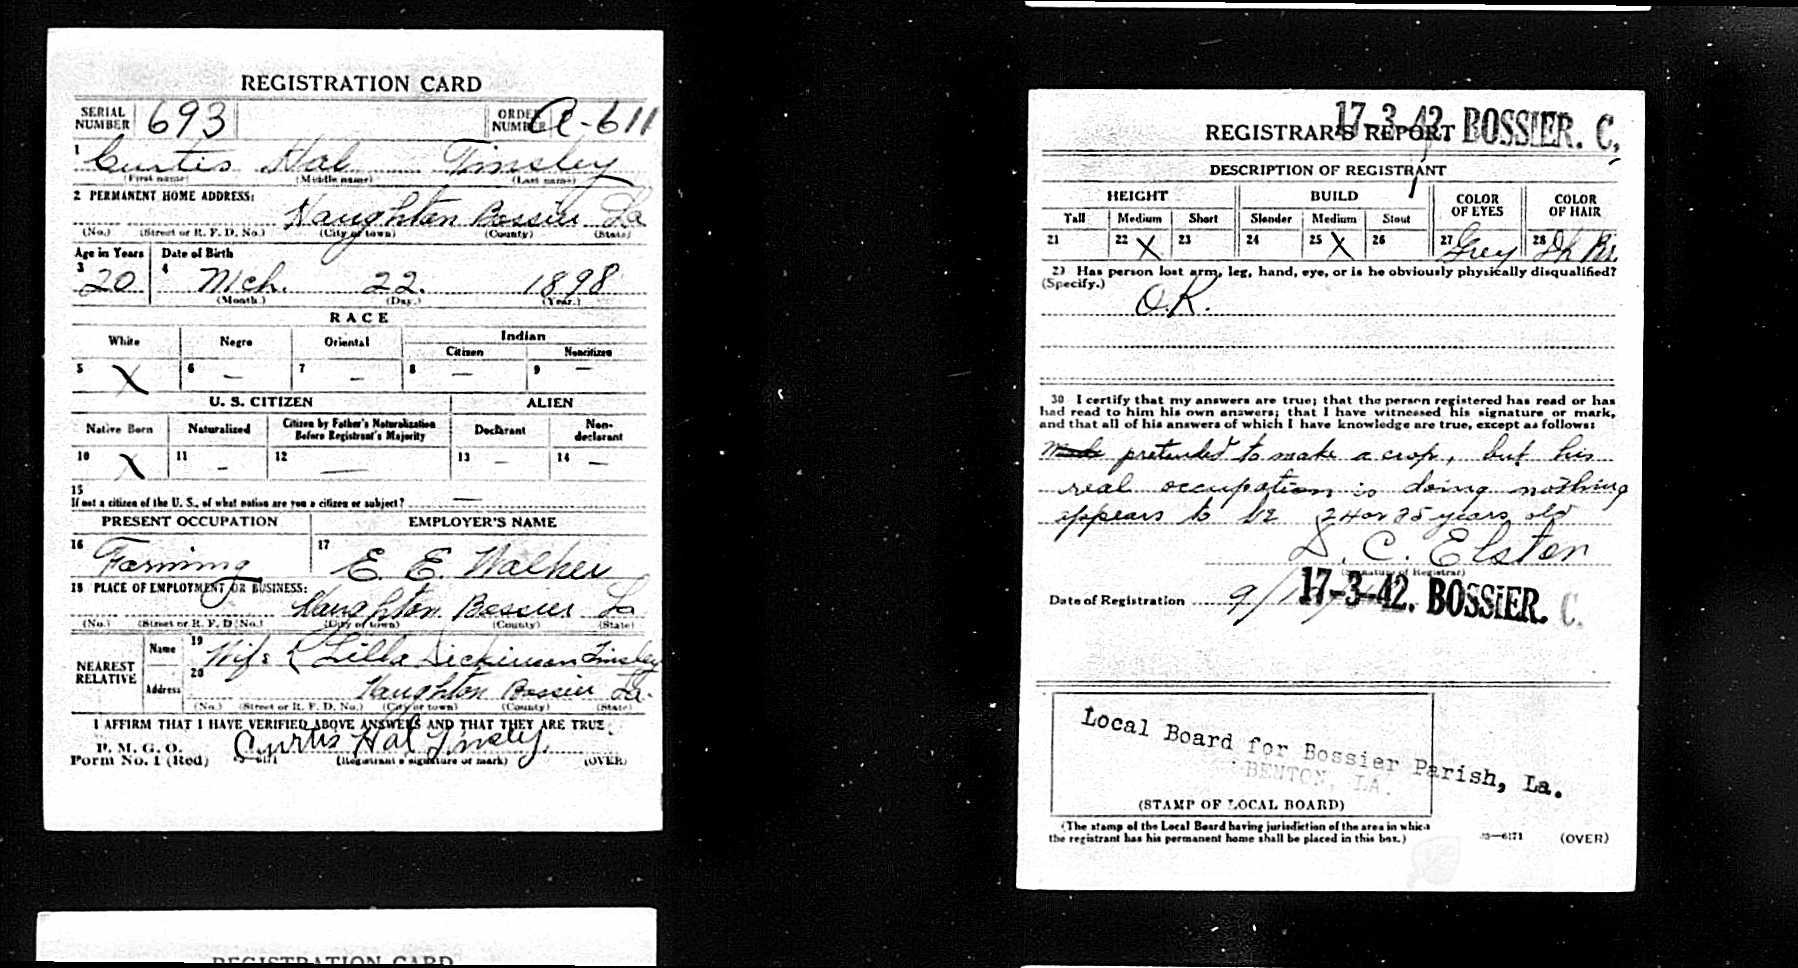 REGISTRATION CARD
SERIAL NUMBER 693 ORDER NUMBER A-611
1 Curtis Hal Tinsley
(First name) (Middle name) (Last name)
2 PERMANENT HOME ADDRESS:
Haughton Bossier La
(No.) (Street or R. F. D. No.) (City or town) (County) (State)
Age in Years Date of Birth
3 20 4 Mch. 22. 1898
(Month.) (Day.) (Year.)
RACE
White Negro Oriental Indian
Citizen Noncitizen
5 X 6 — 7 — 8 — 9 —
U. S. CITIZEN ALIEN
Native Born Naturalized Citizen by Father's Naturalization Before Registrant's Majority Declarant Non-declarant
10 X 11 — 12 — 13 — 14 —
15
If not a citizen of the U. S., of what nation are you a citizen or subject? —
PRESENT OCCUPATION EMPLOYER'S NAME
16 Farming 17 E. E. Walker
18 PLACE OF EMPLOYMENT OR BUSINESS:
Haughton Bossier La
(No.) (Street or R. F. D. No.) (City or town) (County) (State)
NEAREST RELATIVE Name 19 Wife Lilla Dickinson Tinsley
Address 20 Haughton Bossier La.
(No.) (Street or R. F. D. No.) (City or town) (County) (State)
I AFFIRM THAT I HAVE VERIFIED ABOVE ANSWERS AND THAT THEY ARE TRUE
P. M. G. O.
Form No. 1 (Red) Curtis Hal Tinsley.
(Registrant's signature or mark) (OVER)
REGISTRATION CARD
17-3-42. BOSSIER. C.
REGISTRAR'S REPORT
DESCRIPTION OF REGISTRANT
HEIGHT BUILD COLOR OF EYES COLOR OF HAIR
Tall Medium Short Slender Medium Stout
21 22 X 23 24 25 X 26 27 Grey 28
29 Has person lost arm, leg, hand, eye, or is he obviously physically disqualified?
(Specify.)
O.K.
30 I certify that my answers are true; that the person registered has read or has
had read to him his own answers; that I have witnessed his signature or mark,
and that all of his answers of which I have knowledge are true, except as follows:
pretended to make a crop, but his
real occupation is doing nothing
appears to be 24 or 25 years old
D. C. Elston
(Signature of Registrar)
Date of Registration 9/ 17-3-42. BOSSIER. C.
Local Board for Bossier Parish, La.
BENTON, LA.
(STAMP OF LOCAL BOARD)
(The stamp of the Local Board having jurisdiction of the area in which
the registrant has his permanent home shall be placed in this box.) (OVER)